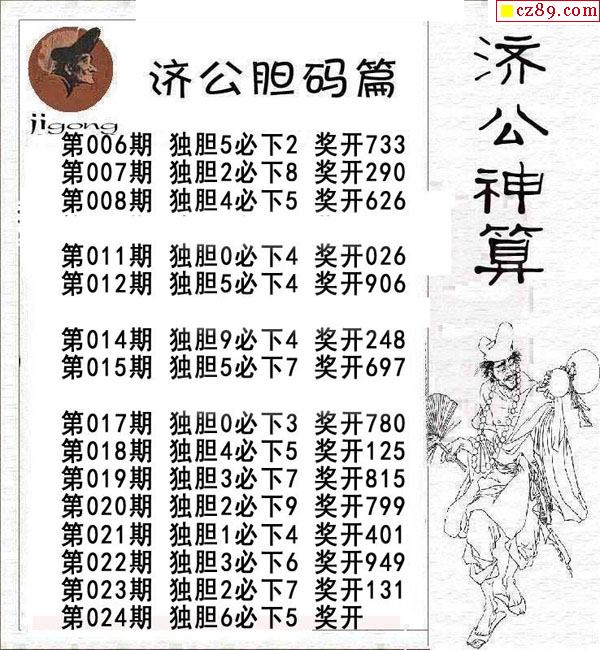 cz89.com
济公胆码篇
jigong
第006期 独胆5必下2 奖开733
第007期 独胆2必下8 奖开290
第008期 独胆4必下5 奖开626
第011期 独胆0必下4 奖开026
第012期 独胆5必下4 奖开906
第014期 独胆9必下4 奖开248
第015期 独胆5必下7 奖开697
第017期 独胆0必下3 奖开780
第018期 独胆4必下5 奖开125
第019期 独胆3必下7 奖开815
第020期 独胆2必下9 奖开799
第021期 独胆1必下4 奖开401
第022期 独胆3必下6 奖开949
第023期 独胆2必下7 奖开131
第024期 独胆6必下5 奖开
济公神算